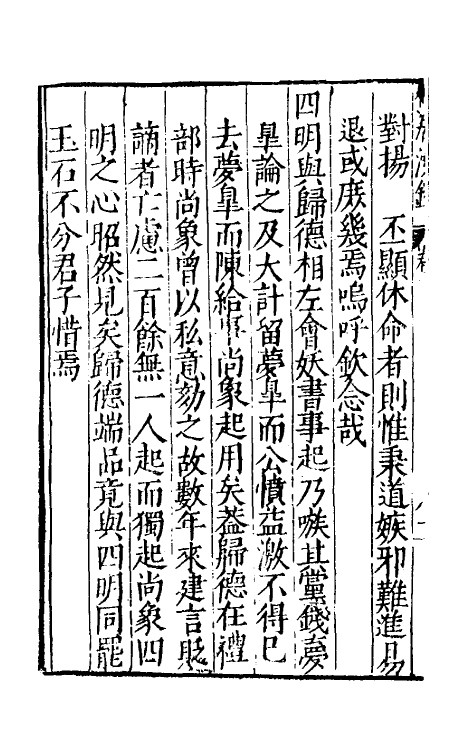 對揚　丕顯休命者則惟秉道嫉邪難進易
退或庻幾焉嗚呼欽念哉
四明與歸德相左會妖書事起乃嗾其黨錢夢
臯論之及大計留夢臯而公憤益激不得已
去夢臯而陳給事尚象起用矣葢歸德在禮
部時尚象曾以私意劾之故數年來建言貶
謫者亡慮二百餘無一人起而獨起尚象四
明之心昭然見矣歸德端品竟與四明同罷
玉石不分君子惜焉